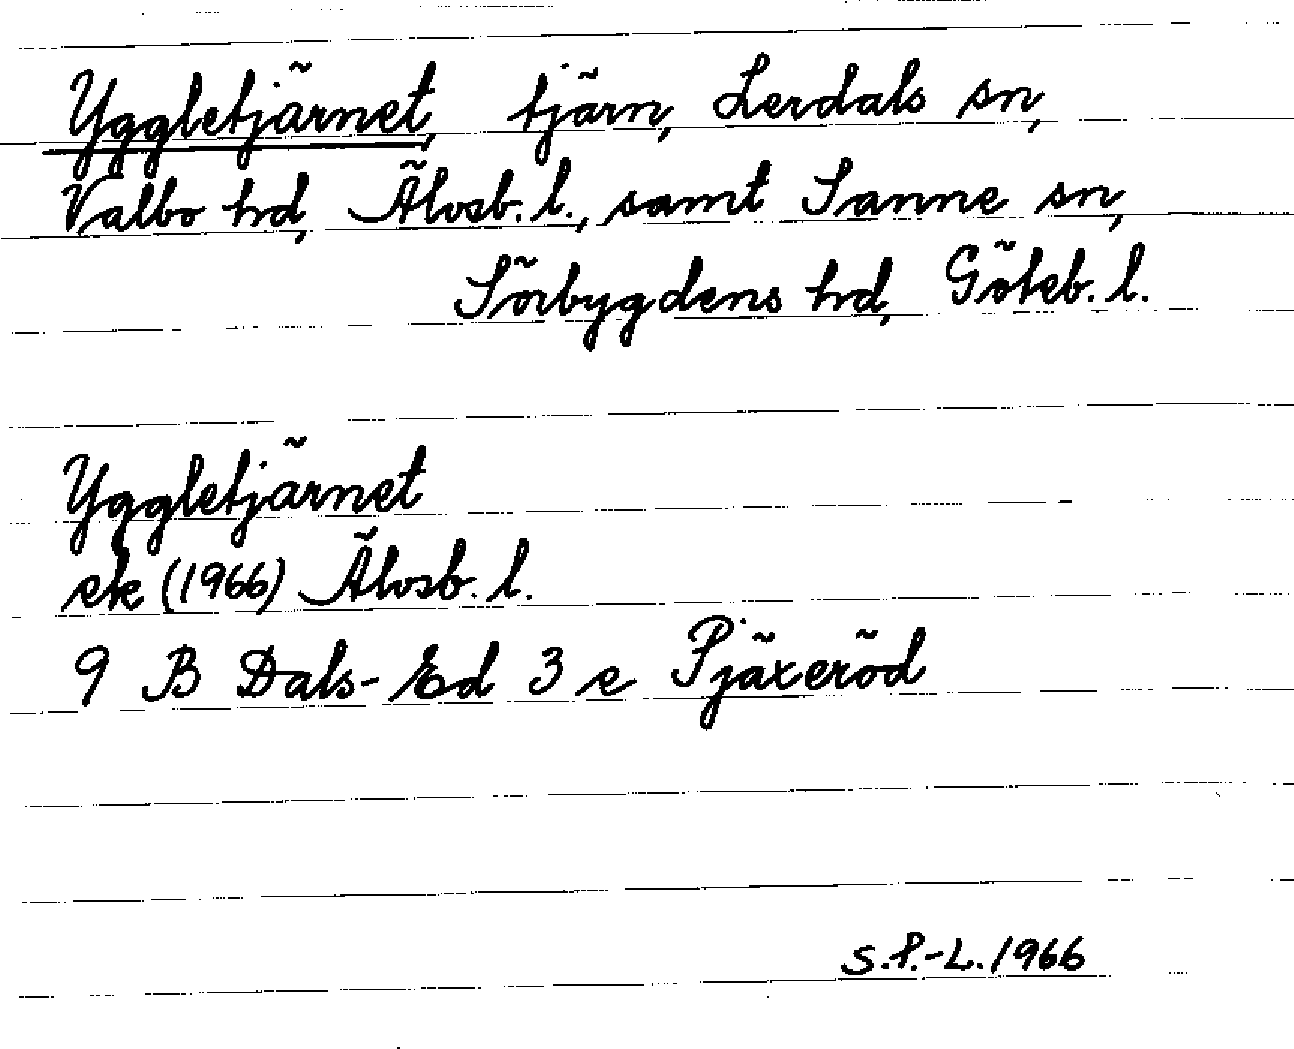 Yggletjärnet, tjärn, Lerdals sn,
Valbo hd, Älvsb. l., samt Sanne sn,
Sörbygdens hd, Göteb. l.
Yggletjärnet
ek (1966) Älvsb. l.
9 B Dals-Ed 3 e Pjäxeröd
S.P.-L. 1966